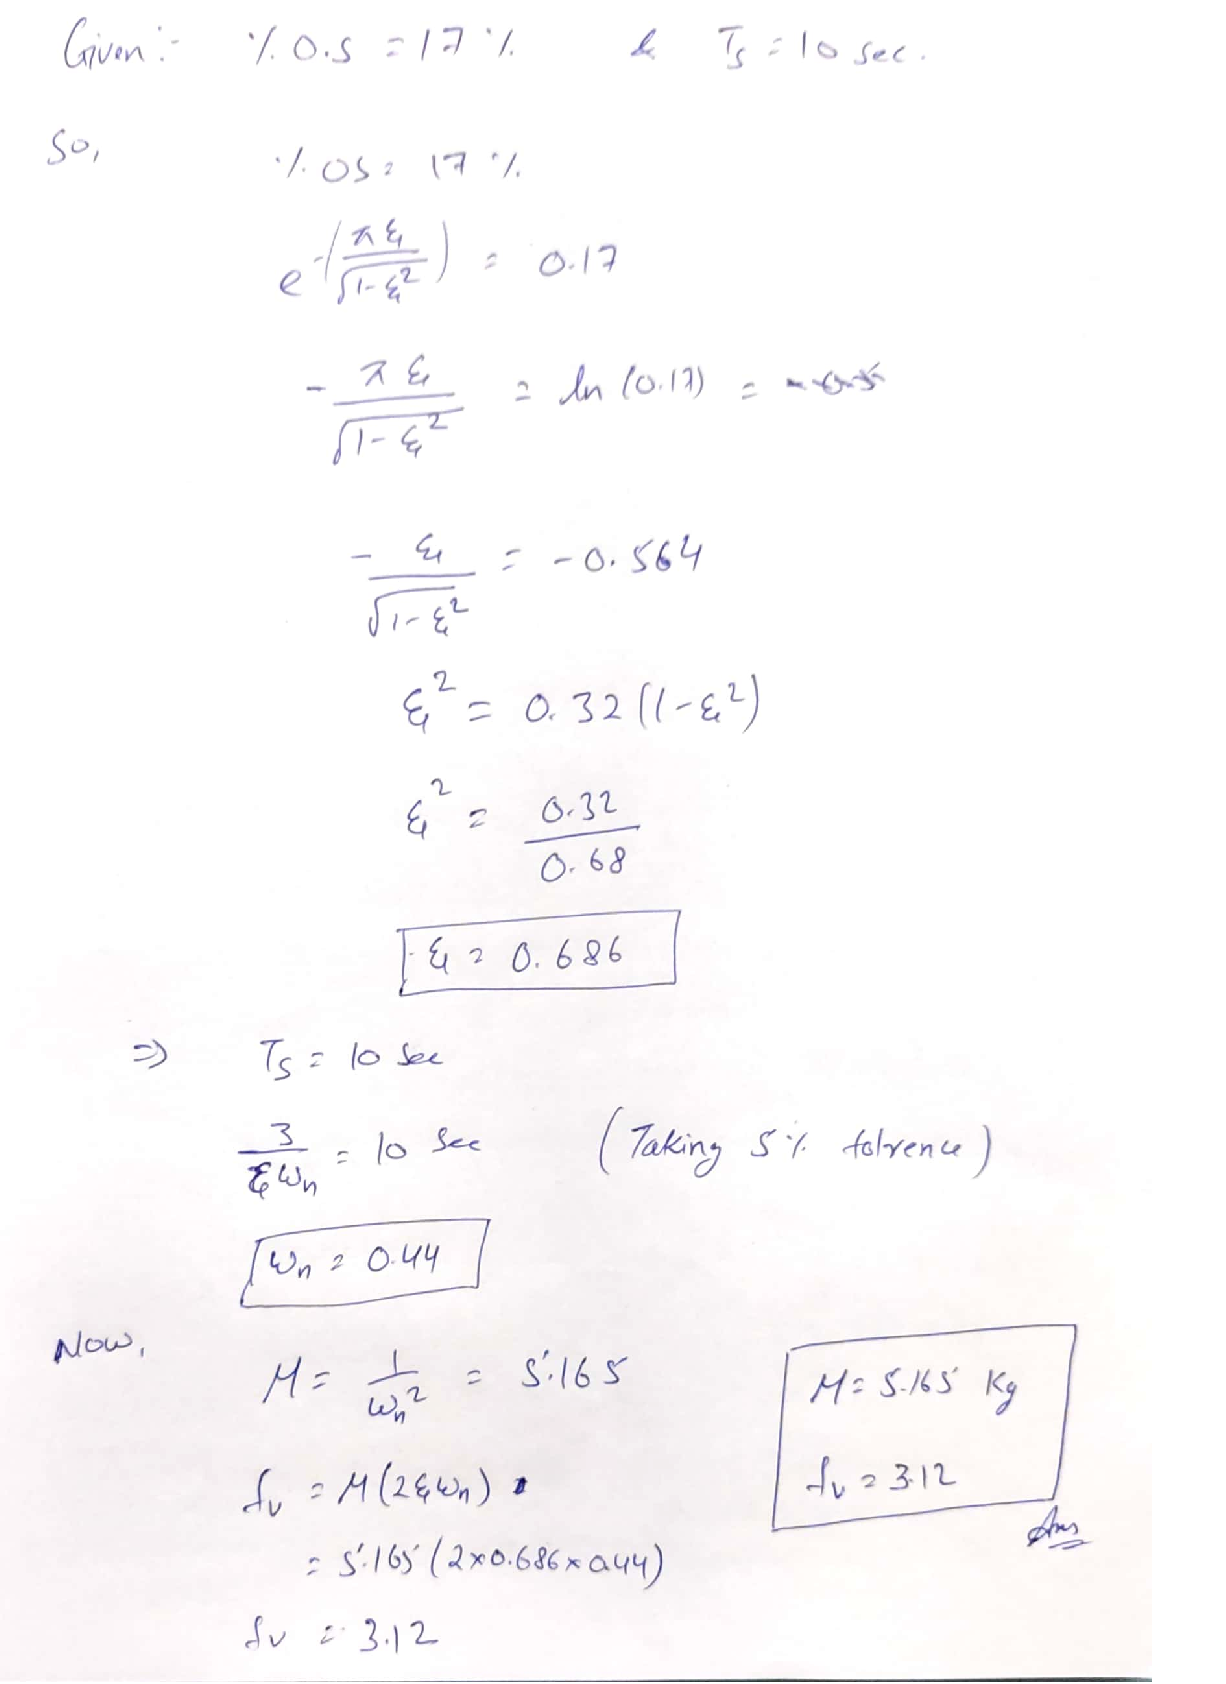 Given:- %O.S = 17 % & Ts = 10 sec.
So,
%OS = 17 %
e^-(πξ/√1-ξ²) = 0.17
- πξ/√1-ξ² = ln (0.17) =
- ξ/√1-ξ² = -0.564
ξ² = 0.32 (1-ξ²)
ξ² = 0.32/0.68
ξ = 0.686
⇒ Ts = 10 sec
3/ξωn = 10 sec (Taking 5% tolrence)
ωn = 0.44
Now,
M = 1/ωn² = 5.165
fv = M(2ξωn)
= 5.165 (2×0.686×0.44)
fv = 3.12
M = 5.165 Kg
fv = 3.12
Ans